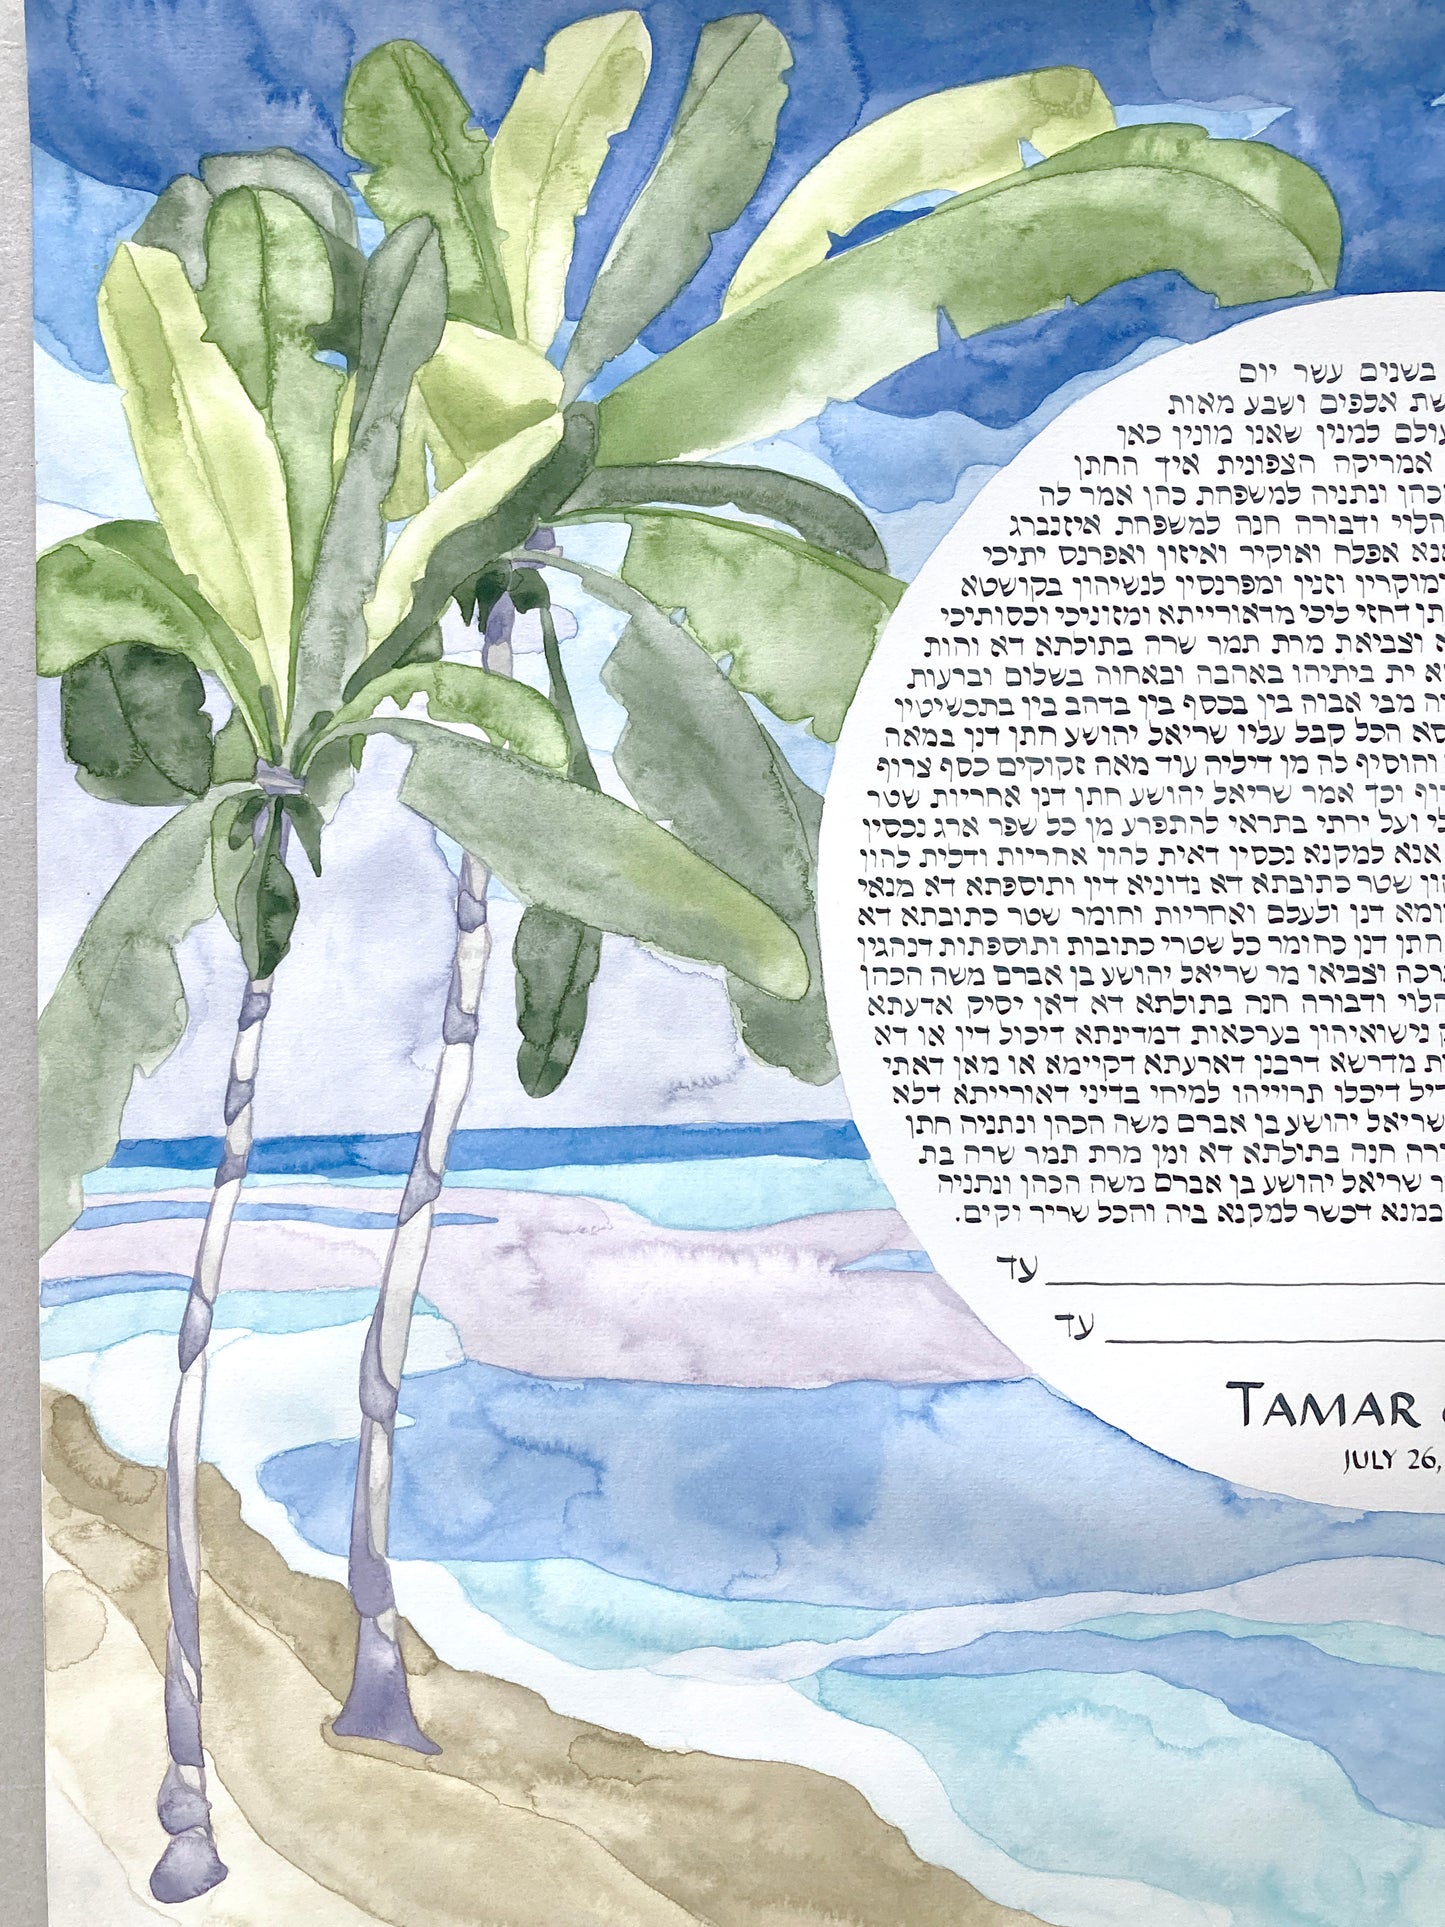 בשנים עשר יום
שת אלפים ושבע מאות
עולם למנין שאנו מונין כאן
אמריקה הצפונית איך החתן
כהן ונתניה למשפחת כהן אמר לה
הלוי ודבורה חנה למשפחת איזנברג
אנא אפלח ואוקיר ואיזון ואפרנס יתיכי
מוקרין וזנין ומפרנסין לנשיהון בקושטא
תן דחזי ליכי מדאורייתא ומזוניכי וכסותיכי
א וצביאת מרת תמר שרה בתולתא דא והות
א ית ביתיהו באהבה ובאחוה בשלום וברעות
יה מבי אבוה בין בכסף בין בדהב בין בתכשיטין
סא הכל קבל עליו שריאל יהושע חתן דנן במאה
והוסיף לה מן דיליה עוד מאה זקוקים כסף צרוף
וף וכד אמר שריאל יהושע חתן דנן אחריות שטר
לי ועל ירתי בתראי להתפרע מן כל שפר ארג נכסין
אנא למקנא נכסין דאית להון אחריות ודלית להון
ון שטר כתובתא דא נדוניא דין ותוספתא דא מנאי
ומא דנן ולעלם ואחריות וחומר שטר כתובתא דא
חתן דנן כחומר כל שטרי כתובות ותוספתות דנהגין
רכה וצביאו מר שריאל יהושע בן אברם משה הכהן
הלוי ודבורה חנה בתולתא דא דאן יסיק אדעתא
ק נישואיהון בערכאות דמדינתא דיכול דין או דא
ית מדרשא דרבנן דארעתא דקיימא או מאן דאתי
דיל דיכלו תרוייהו למיחי בדיני דאורייתא דלא
שריאל יהושע בן אברם משה הכהן ונתניה חתן
ורה חנה בתולתא דא ומן מרת תמר שרה בת
ר שריאל יהושע בן אברם משה הכהן ונתניה
במנא דכשר למקנא ביה והכל שריר וקים.
עד
עד
TAMAR
JULY 26,